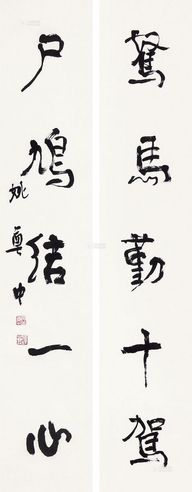 駑馬勤十駕
尸鳩結一心
姚奠中